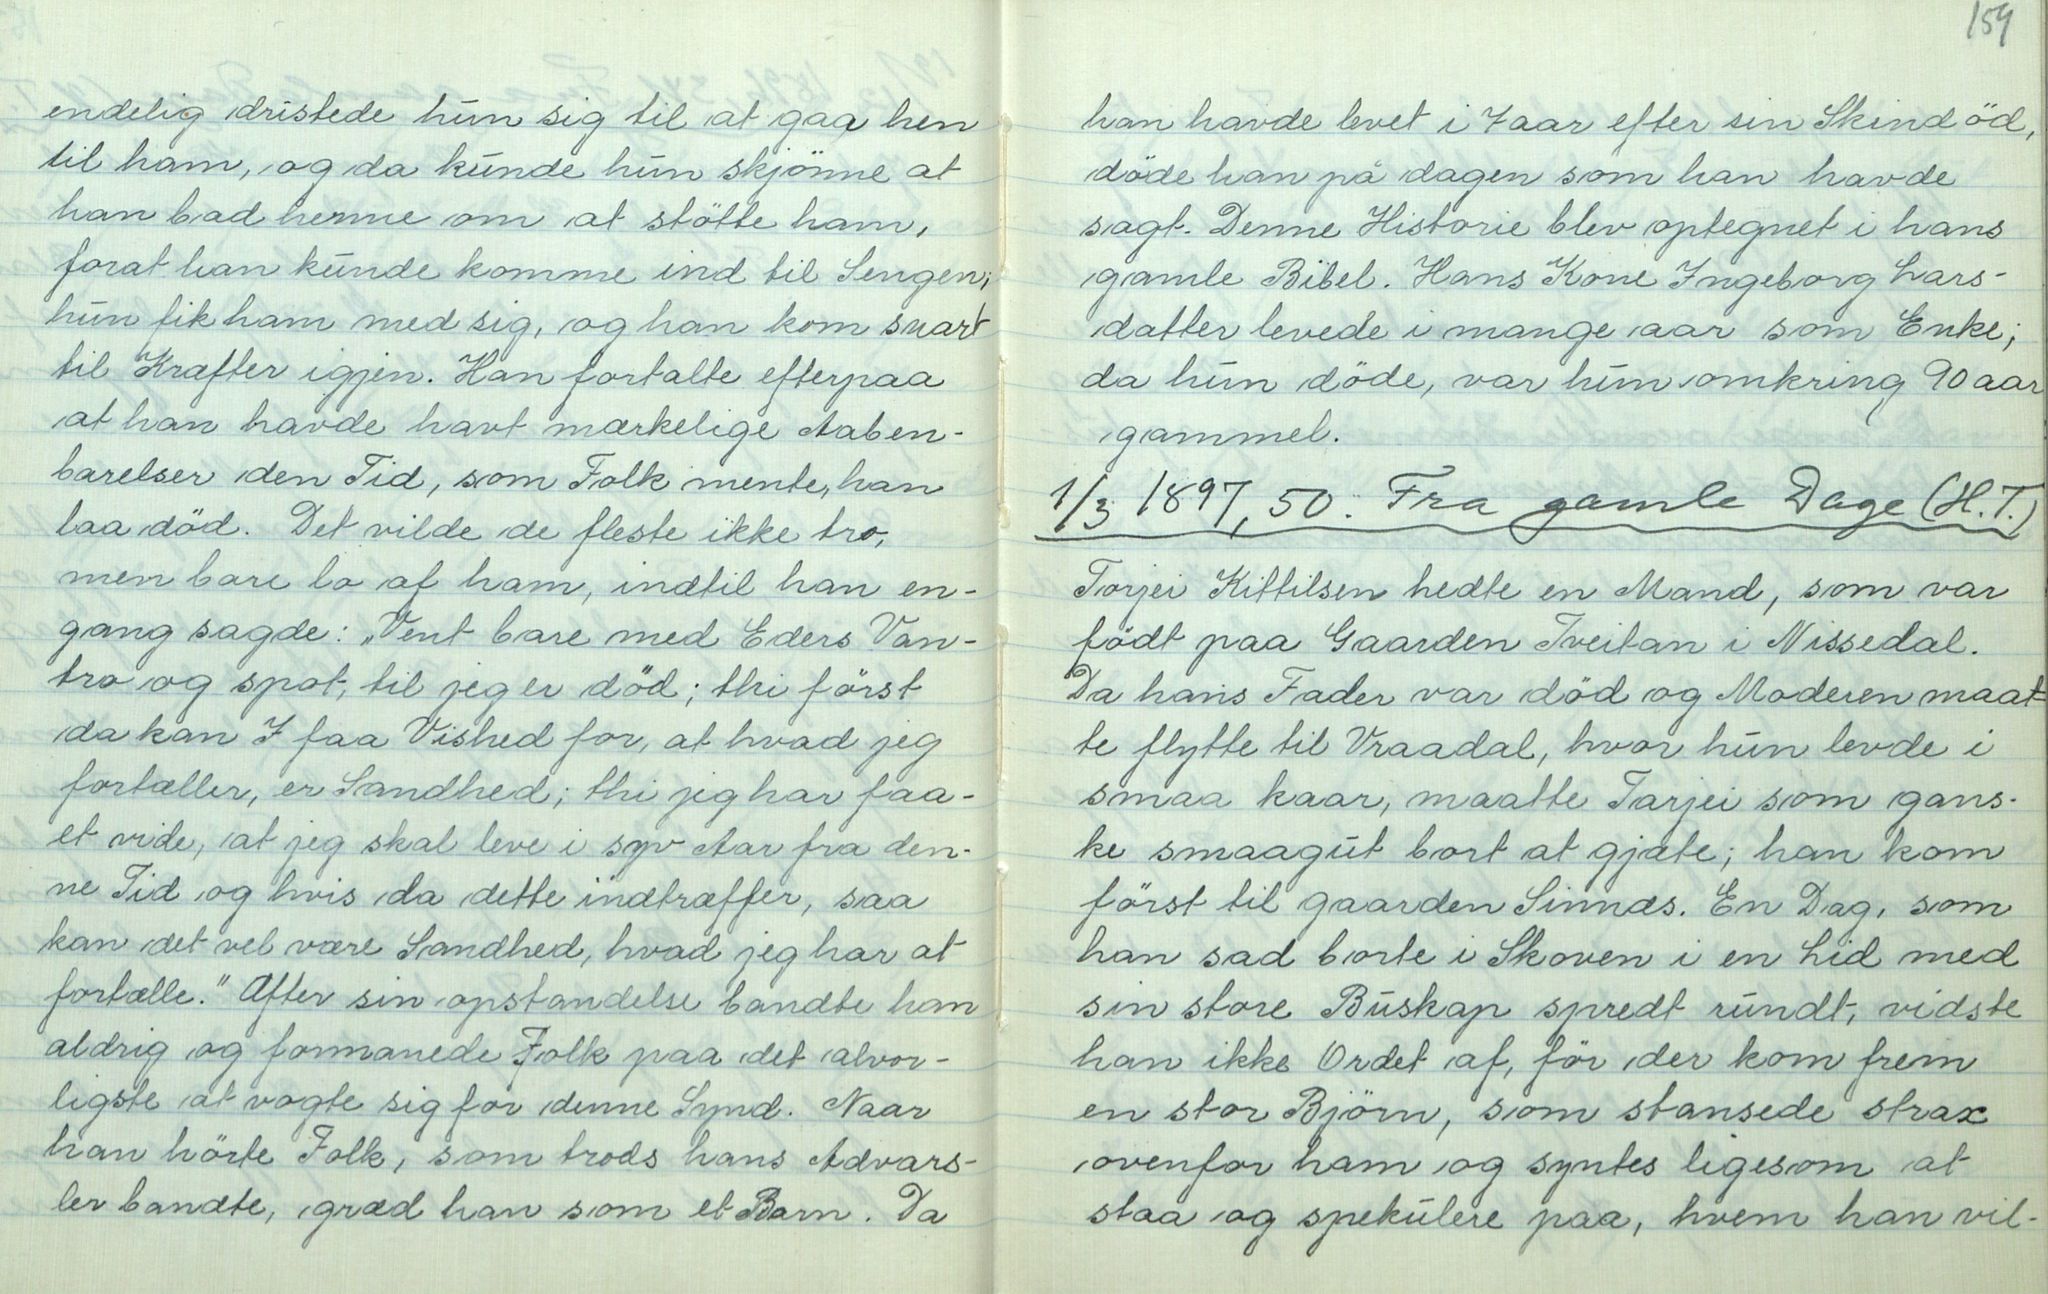 endelig dristede hun sig til at gaa hen
til ham, og da kunde hun skjönne at
han bad henne om at stötte ham,
forat han kunde komme ind til Sengen;
hun fik ham med sig, og han kom snart
til Kræfter igjen. Han fortalte efterpaa
at han havde havt mærkelige Aaben-
barelser den Tid, som Folk mente, han
laa död. Det vilde de fleste ikke tro,
men bare lo af ham, indtil han en-
gang sagde: „Vent bare med Eders Van-
tro og spot, til jeg er död; thi först
da kan I faa Vished for, at hvad jeg
fortæller, er Sandhed; thi jeg har faa-
et vide, at jeg skal leve i syv Aar fra den-
ne Tid og hvis da dette indtræffer, saa
kan det vel være Sandhed, hvad jeg har at
fortælle." After sin opstandelse bandte han
aldrig og formanede Folk paa det alvor-
ligste at vogte sig for denne Synd. Naar
han hörte Folk, som trods hans Advars-
ler bandte, græd han som et Barn. Da
159
han havde levet i 7 aar efter sin Skindöd,
döde han på dagen som han havde
sagt. Denne Historie blev optegnet i hans
gamle Bibel. Hans Kone Ingeborg Lars-
datter levede i mange aar som Enke;
da hun döde, var hun omkring 90 aar
gammel.
1/3 1897, 50. Fra gamle Dage (H.T.)
Torjei Kittilsen hedte en Mand, som var
födt paa Gaarden Tveitan i Nissedal.
Da hans Fader var död og Moderen maat=
te flytte til Vraadal, hvor hun levde i
smaa kaar, maatte Tarjei som gans-
ke smaagut bort at gjæte; han kom
först til gaarden Sinnds. En Dag, som
han sad borte i Skoven i en Lid med
sin store Buskap spredt rundt, vidste
han ikke Ordet af, för der kom frem
en stor Björn, som stansede strax
ovenfor ham og syntes ligesom at
staa og spekulere paa, hvem han vil-